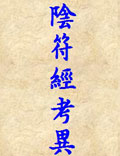 陰符經考異